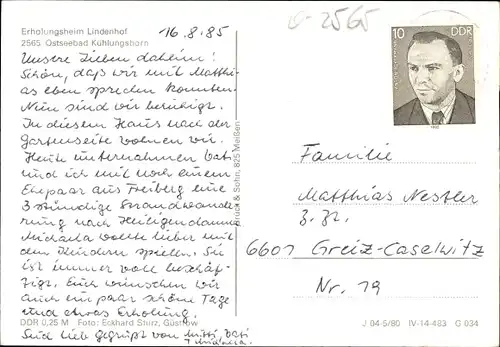 Erholungsheim Lindenhof
2565 Ostseebad Kühlungsborn
16.8.85
Unsre Lieben daheim!
Schön, daß wir mit Matthi-
as eben sprechen konnten.
Nun sind wir beruhigt.
In diesem Haus nach der
Gartenseite wohnen wir.
Heute unternahmen Vati
und ich mit noch einem
Ehepaar aus Freiberg eine
3-stündige Strandwande-
rung nach Heiligendamm
Michaela wollte lieber mit
den Kindern spielen. Sie
ist immer voll beschäf-
tigt. Euch wünschen wir
auch ein paar schöne Tage
und etwas Erholung.
Seid lieb gegrüßt von Mutti, Vati
+ Michaela
DDR 0,25 M Foto: Eckhard Sturz, Güstrow
Brück & Sohn, 825 Meißen
2565
10 DDR
Familie
Matthias Nestler
z. Zt.
6601 Greiz-Caselwitz
Nr. 19
J 04-5/80 IV-14-483 G 034